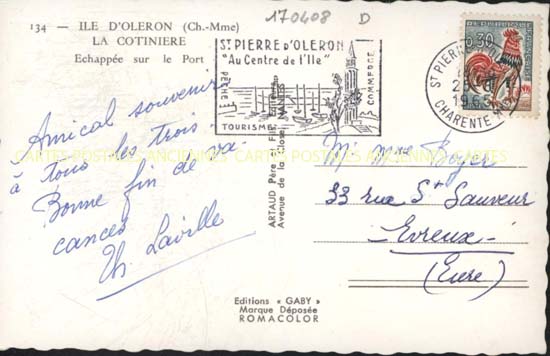 170408 D
134 — ILE D'OLERON (Ch.-Mme)
LA COTINIERE
Echappée sur le Port
ST PIERRE D'OLERON
"Au Centre de l'Ile"
PECHE
COMMERCE
TOURISME
ST PIERRE
CHARENTE
0,30
Amical souvenir
à tous les trois
Bonne fin de va-
cances
Th. Laville
CARTES POSTALES ANCIENNES CARTES POSTALES ANCIENNES CARTES POSTALES ANCIENNES
ARTAUD Père et Fils, Editeurs
Avenue de la Close, NANTES
M. Mme Royer
33 rue St Sauveur
Evreux
(Eure)
Editions « GABY »
Marque Déposée
ROMACOLOR